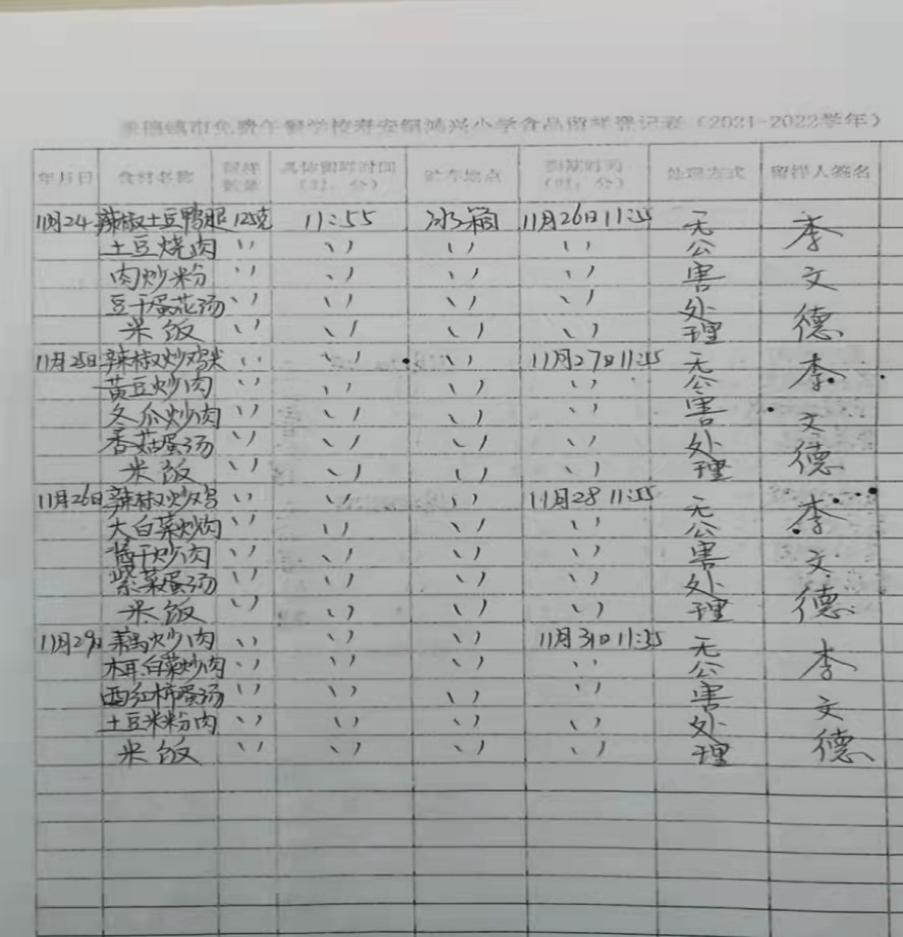 景德镇市免费午餐学校寿安镇鸿兴小学食品留样登记表（2021-2022学年）
年月日 食材名称 留样数量 具体留样时间（时：分） 贮存地点 到期时间（时：分） 处理方式 留样人签名
11月24 辣椒土豆鸭腿 125克 11:55 冰箱 11月26日11:55 无 李
土豆烧肉 〃 〃 〃 〃 公
肉炒粉 〃 〃 〃 〃 害 文
豆干蛋花汤 〃 〃 〃 〃 处
米饭 〃 〃 〃 〃 理 德
11月25日 辣椒炒鸡米 〃 〃 〃 11月27日11:55 无 李
黄豆炒肉 〃 〃 〃 〃 公
冬瓜炒肉 〃 〃 〃 〃 害 文
香菇蛋汤 〃 〃 〃 〃 处
米饭 〃 〃 〃 〃 理 德
11月26日 辣椒炒鸡 〃 〃 〃 11月28 11:55 无 李
大白菜炒肉 〃 〃 〃 〃 公
酱干炒肉 〃 〃 〃 〃 害 文
紫菜蛋汤 〃 〃 〃 〃 处
米饭 〃 〃 〃 〃 理 德
11月29日 炒肉 〃 〃 〃 11月31日11:55 无 李
木耳白菜炒肉 〃 〃 〃 〃 公
西红柿蛋汤 〃 〃 〃 〃 害 文
土豆米粉肉 〃 〃 〃 〃 处
米饭 〃 〃 〃 〃 理 德